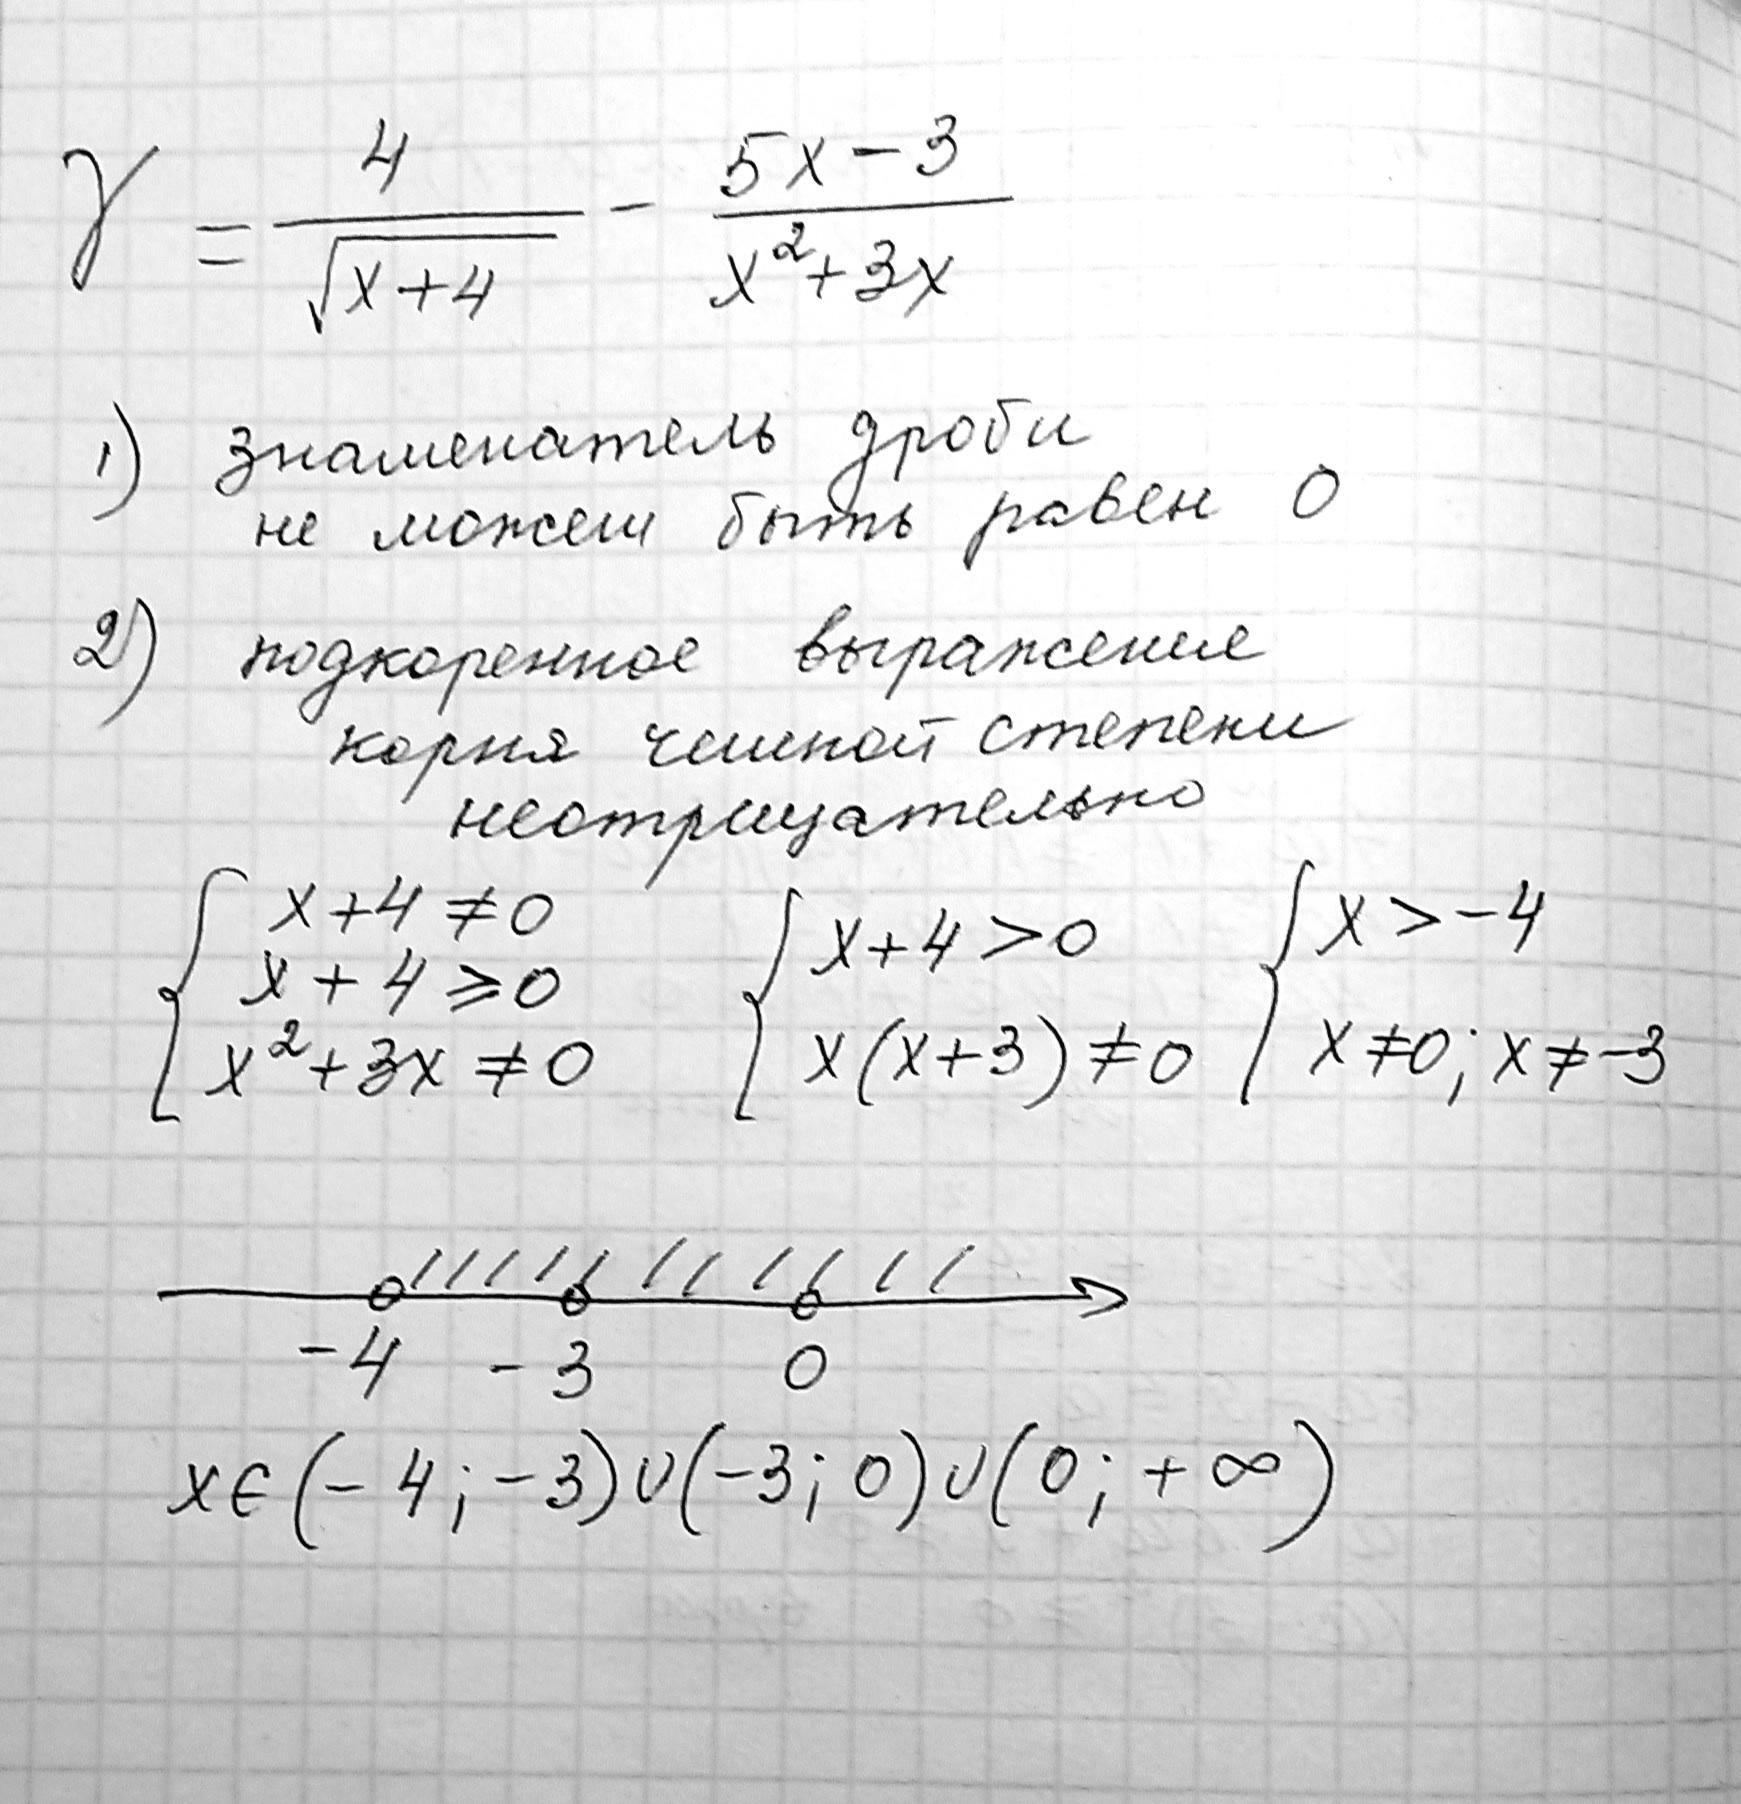 y = 4/√(x+4) - (5x-3)/(x²+3x)
1) знаменатель дроби
не может быть равен 0
2) подкоренное выражение
корня четной степени
неотрицательно
{ x+4≠0 { x+4>0 { x>-4
x+4⩾0
x²+3x≠0 x(x+3)≠0 x≠0; x≠-3
-4 -3 0
x∈(-4;-3)∪(-3;0)∪(0;+∞)